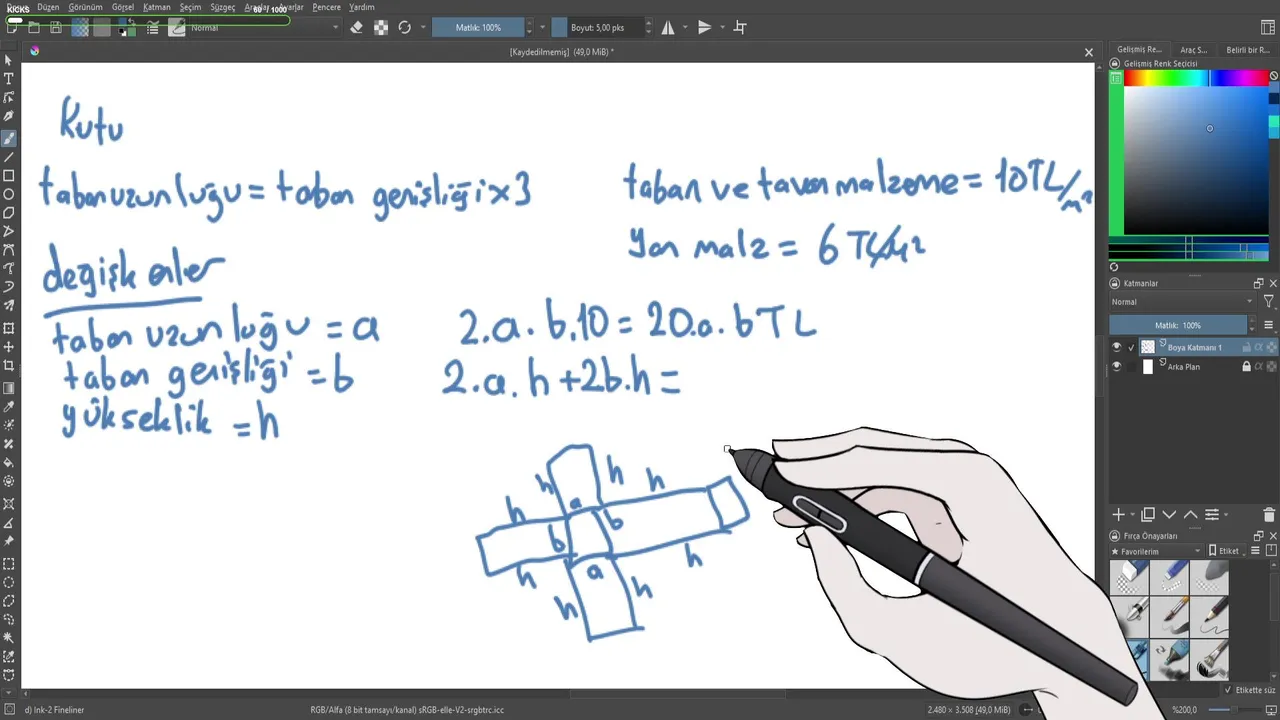 KICKS
60 / 1000
Düzen Görünüm Katman Seçim Süzgeç Araçlar Pencere Yardım
Normal
Matlık: 100%
Boyut: 5,00 pks
[Kaydedilmemiş] (49,0 MiB) *
Gelişmiş Re... Araç S... Belirli bir R...
Gelişmiş Renk Seçicisi
Kutu
taban uzunluğu = taban genişliği x 3
taban ve tavan malzeme = 10TL/m²
yan malz = 6 TL/m²
değişkenler
taban uzunluğu = a
taban genişliği = b
yükseklik = h
2.a.b.10 = 20.a.b TL
2.a.h + 2b.h =
h
h
h
h
a
h
b
b
a
h
h
h
h
Katmanlar
Normal
Matlık: 100%
Boya Katmanı 1
Arka Plan
Fırça Önayarları
Favorilerim
Etiket
Etikette süz
d) Ink-2 Fineliner
RGB/Alfa (8 bit tamsayı/kanal) sRGB-elle-V2-srgbtrc.icc
2.480 × 3.508 (49,0 MiB)
%200,0